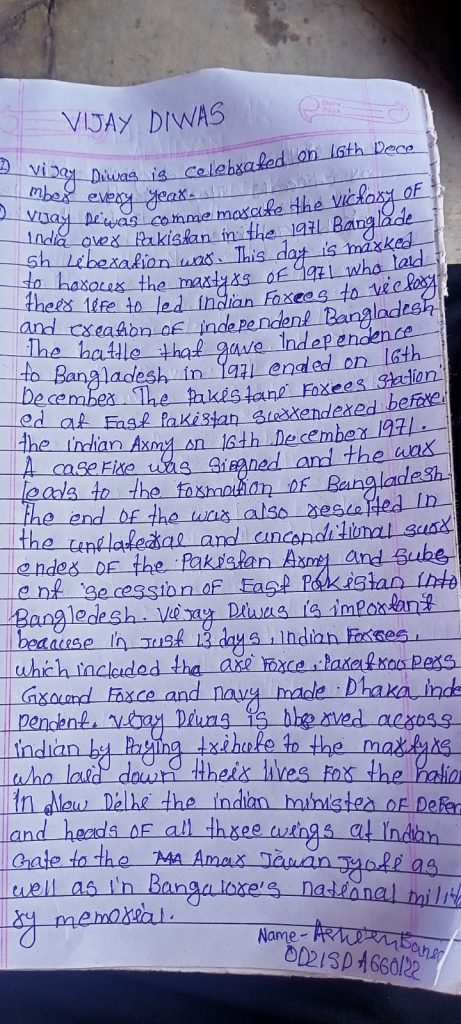 VIJAY DIWAS
vijay Diwas is celebrated on 16th Dece
mber every year.
vijay Diwas commemorate the victory OF
India over Pakistan in the 1971 Banglade
sh Liberation war. This day is marked
to horoues the martyrs OF 1971 who laid
theer life to led Indian Forees to victory
and creation OF independent Bangladesh
The battle that gave Independence
to Bangladesh in 1971 ended on 16th
December. The Pakistane Forees station
ed at East Pakistan surrendered before
the indian Army on 16th December 1971.
A caseFire was siegned and the war
leads to the Formation OF Bangladesh.
The end OF the war also resulted in
the unelateral and unconditional surr
ender OF the Pakistan Army and subs
ent secession OF East Pakistan into
Bangledesh. Vijay Diwas is important
beacuse in Just 13 days, indian Forses,
which included tha are Force, Paratroopers
Ground Force and navy made Dhaka inde
pendent. vijay Diwas is observed across
indian by Paying tribute to the martyrs
who laid down theer lives For the nation
In New Delhe the indian minister OF Defen
and heads OF all three wings at Indian
Gate to the Amar Jawan Jyote as
well as in Bangalore's national milit
ry memorial.
Name-
OD21SDA660122